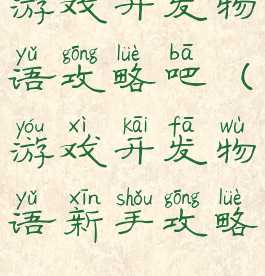 游戏开发物
yǔ gōng lüè bā
语攻略吧（
yóu xì kāi fā wù
游戏开发物
yǔ xīn shǒu gōng lüè
语新手攻略